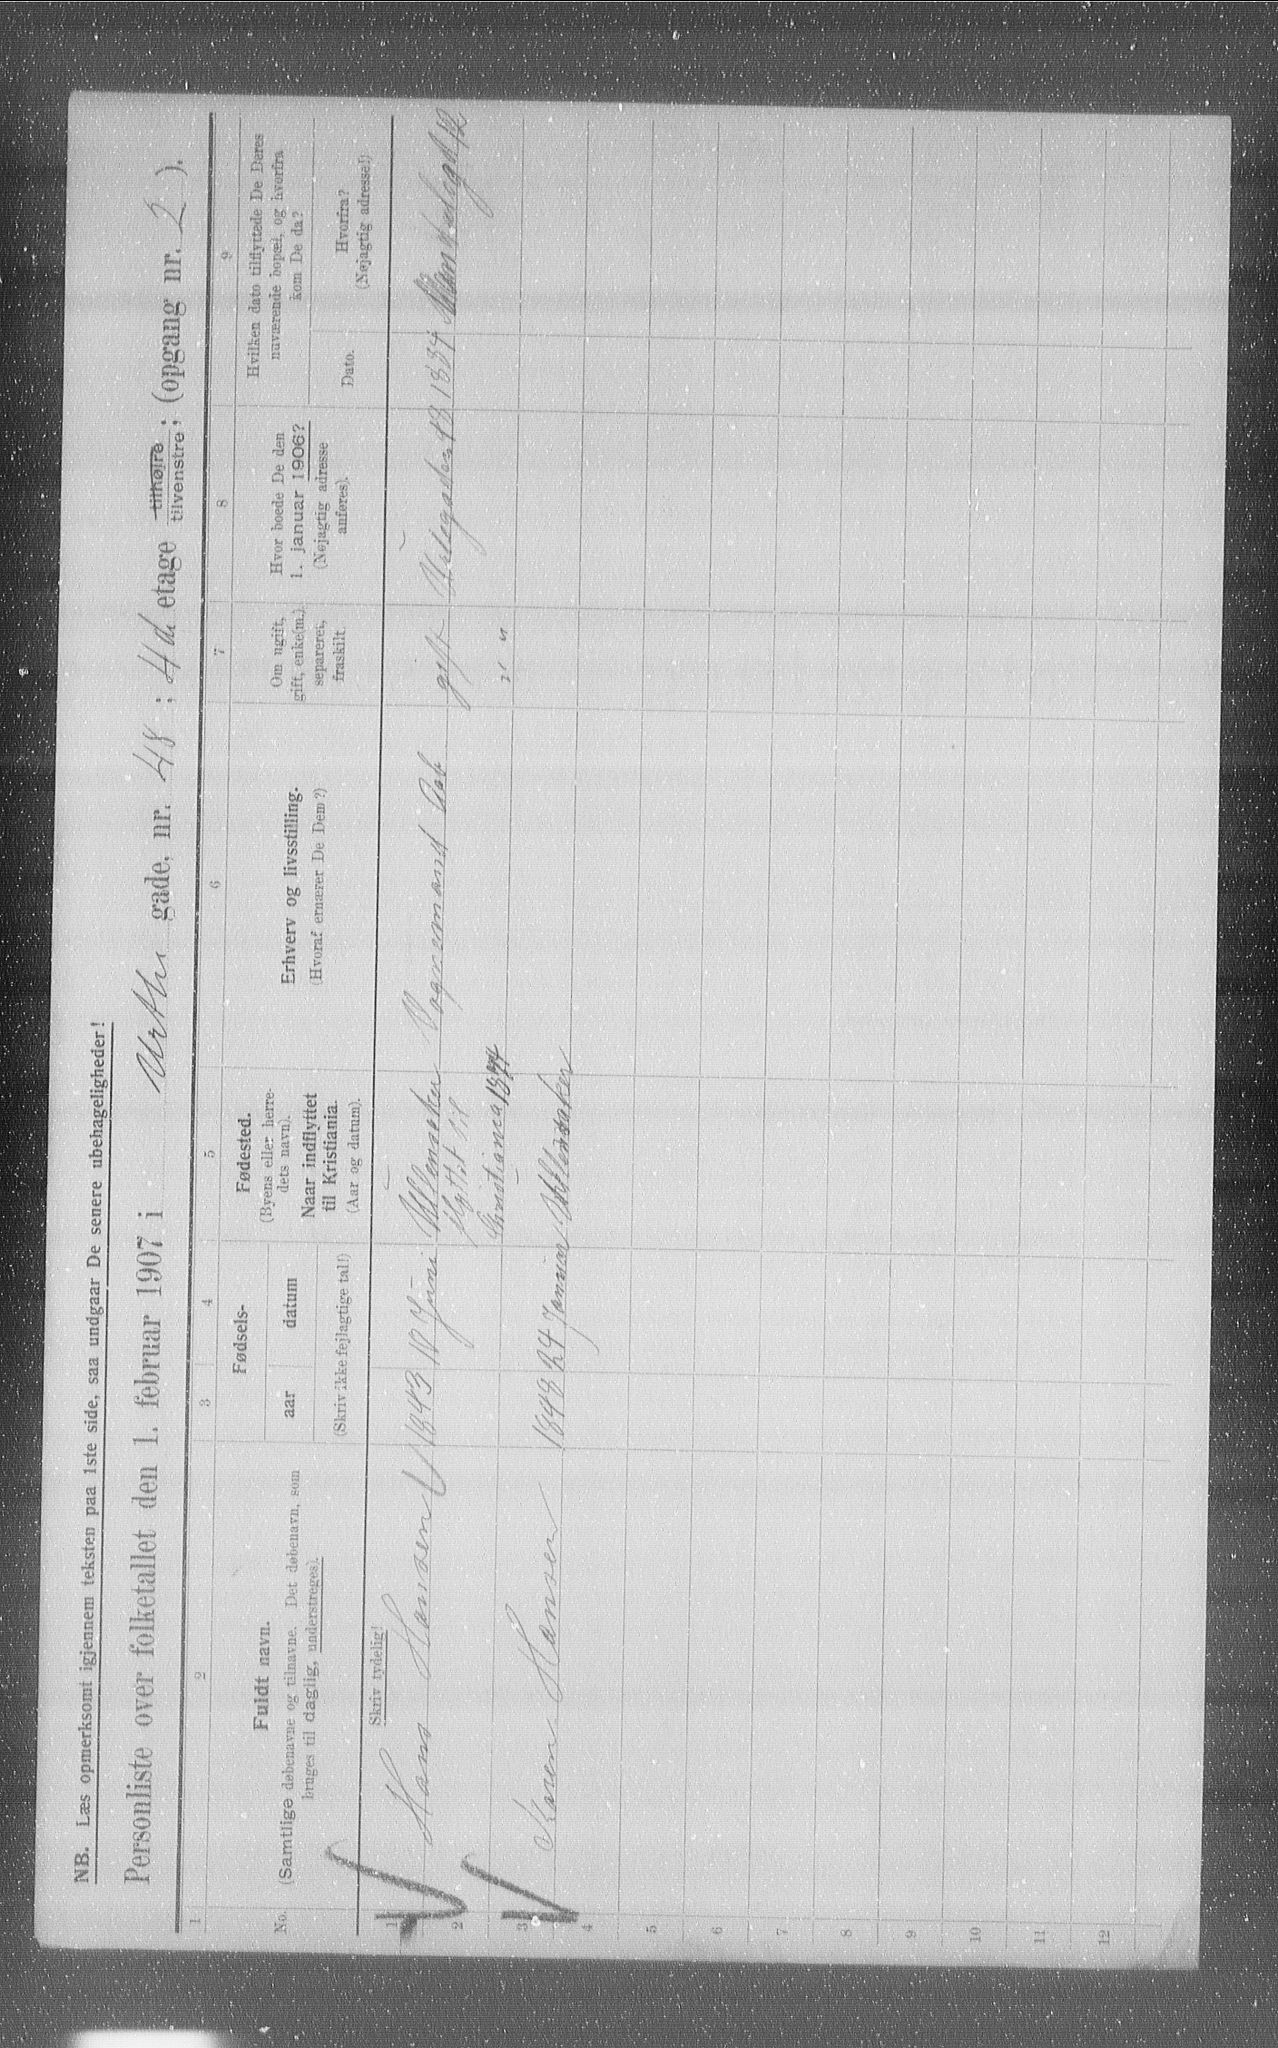 NB. Læs opmerksomt igjennem teksten paa 1ste side, saa undgaar De senere ubehageligheder!
Personliste over folketallet den 1. februar 1907 i Urthe gade, nr. 48 ; 4de etage tilhøire, tilvenstre, (opgang nr. 2 ).
1 2 3 4 5 6 7 8 9
No.
Fuldt navn.
(Samtlige døbenavne og tilnavne. Det døbenavn, som
bruges til daglig, understreges).
Fødsels-
aar datum
(Skriv ikke fejlagtige tal!)
Fødested.
(Byens eller herre-
dets navn).
Naar indflyttet
til Kristiania.
(Aar og datum).
Erhverv og livsstilling.
(Hvoraf ernærer De Dem?)
Om ugift,
gift, enke(m.),
separeret,
fraskilt.
Hvor boede De den
1. januar 1906?
(Nøjagtig adresse
anføres).
Hvilken dato tilflyttede De Deres
nuværende bopæl, og hvorfra
kom De da?
Dato.
Hvorfra?
(Nøjagtig adresse!)
Skriv tydelig!
1 Hans Hansen 1843 10 Juni Ullensaker Vognmand gift 48 1884
flyttet til
2 Christiania
3 Karen Hansen 1848 24 Januar Ullensaker " "
4
5
6
7
8
9
10
11
12